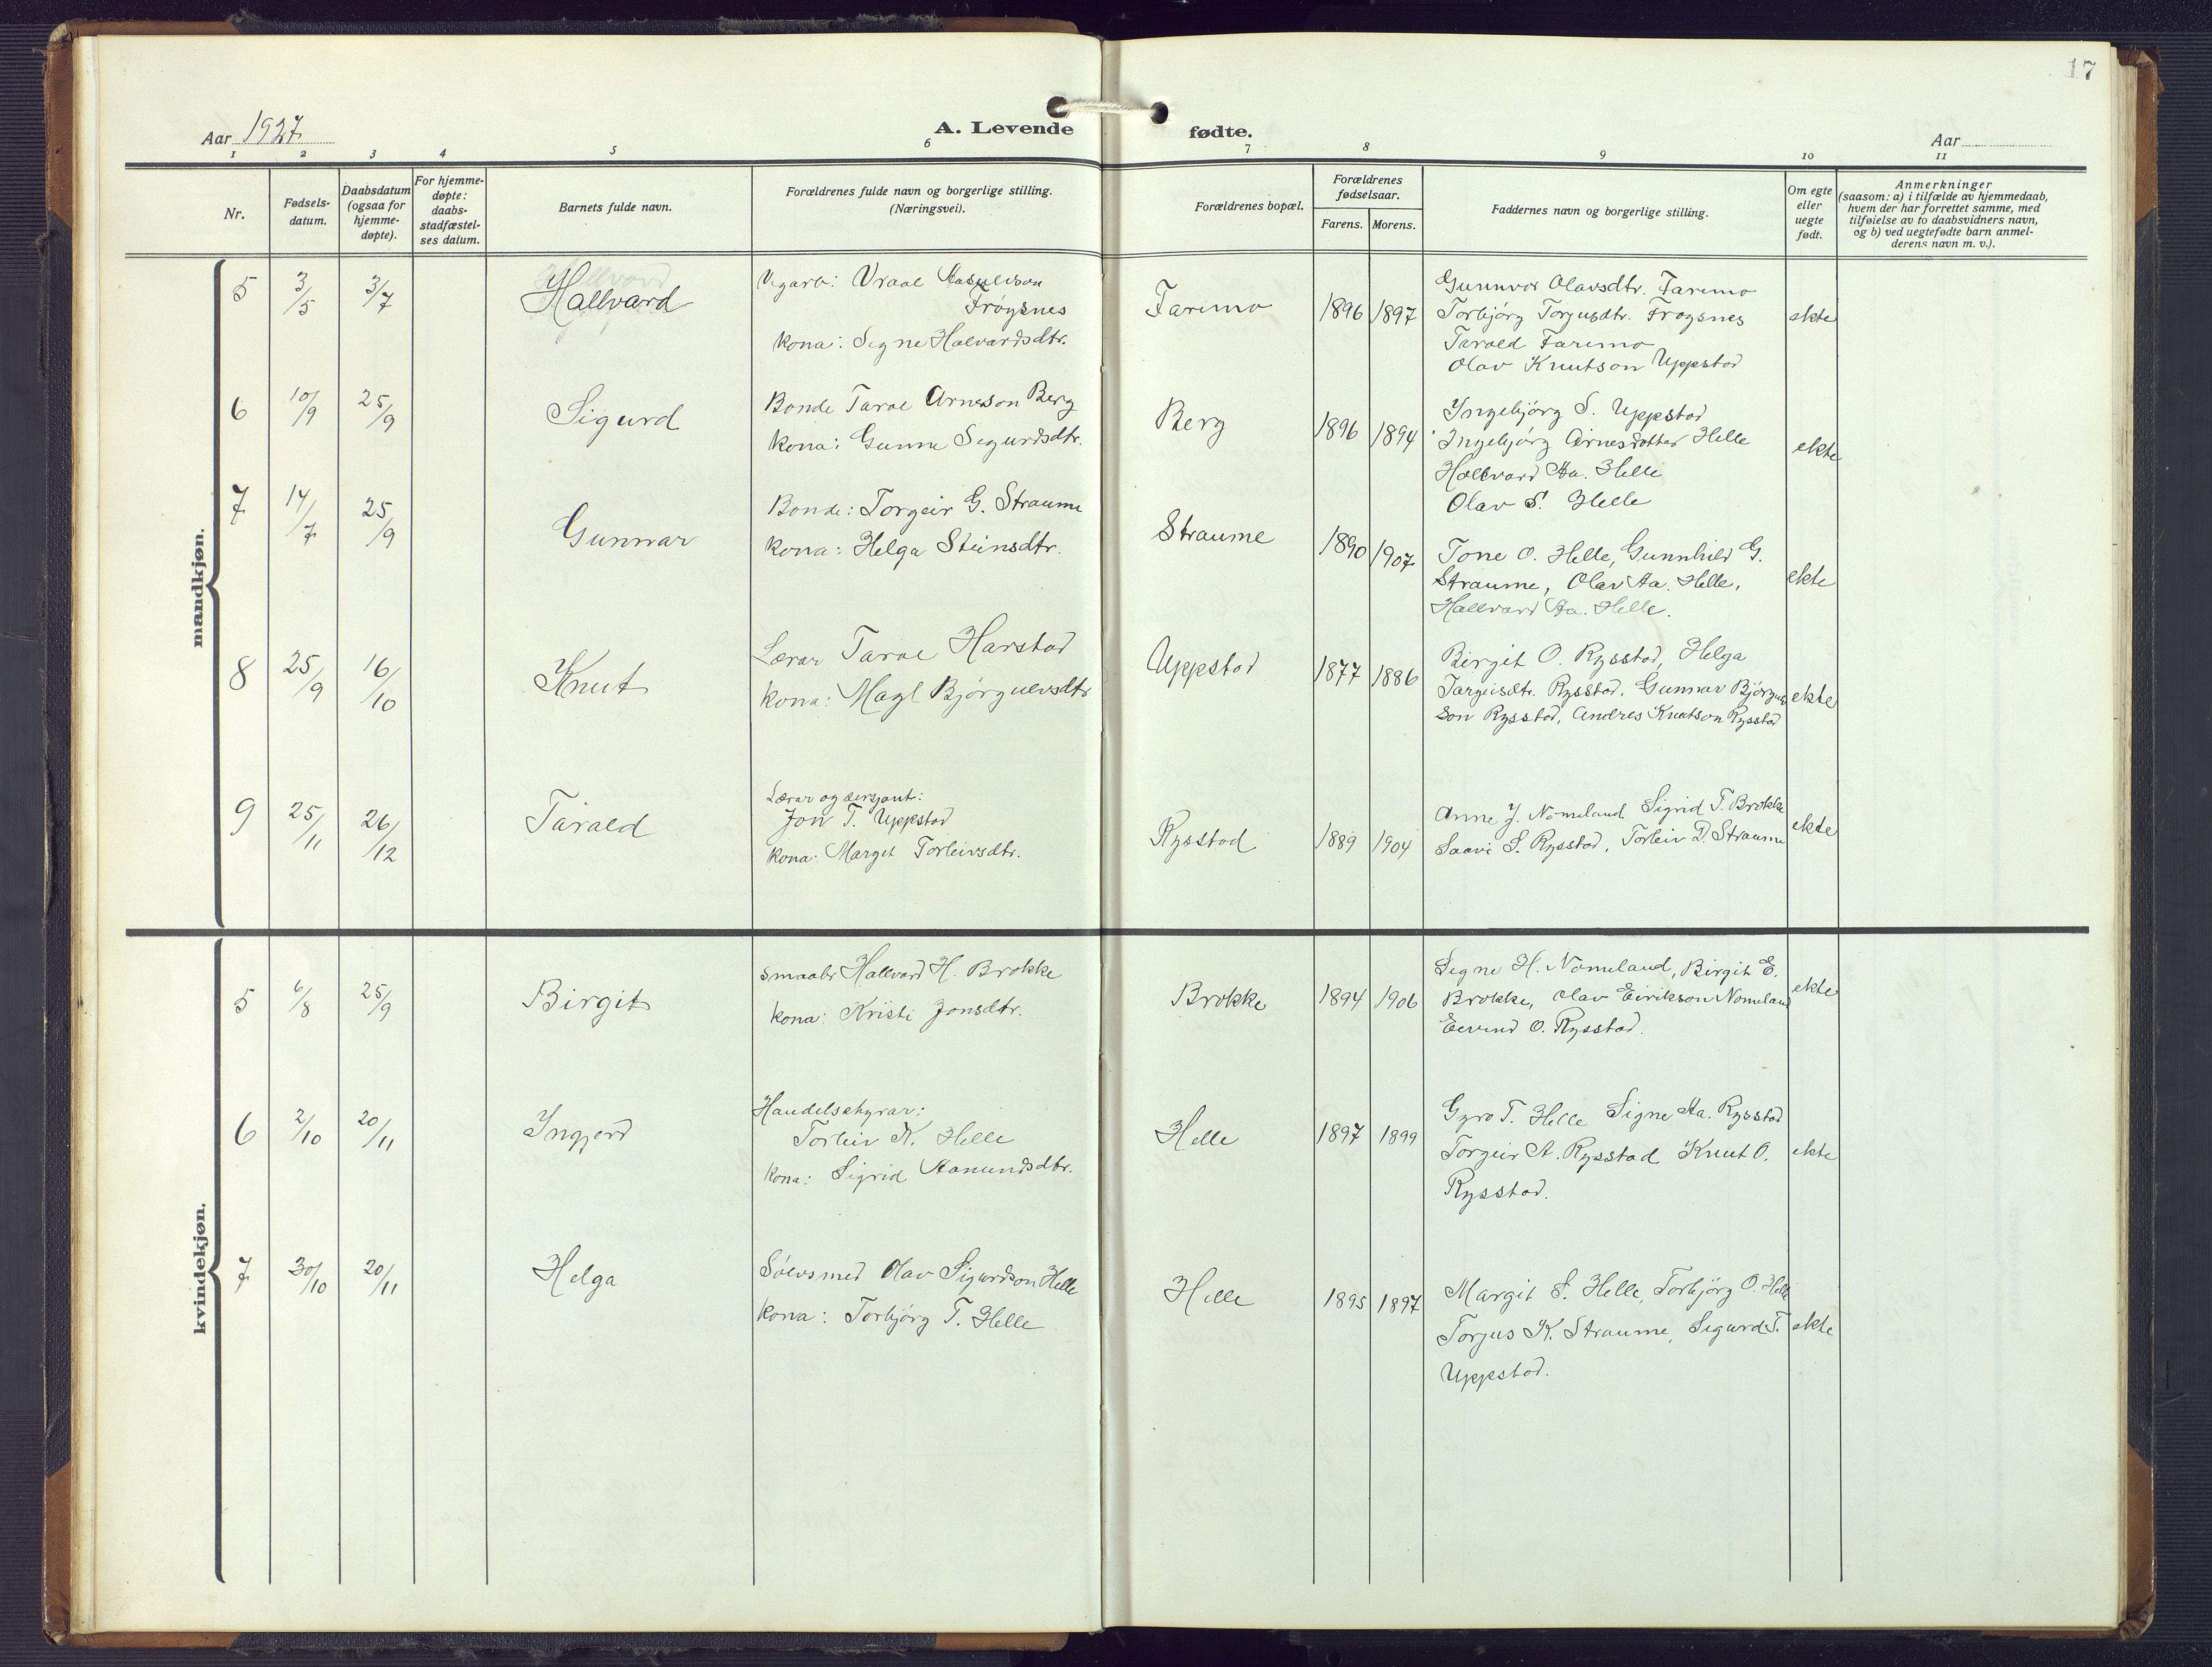 17
Aar 1927
A. Levende fødte.
Aar
1 2 3 4 5 6 7 8 9 10 11
Nr.
Fødsels-
datum.
Daabsdatum
(ogsaa for
hjemme-
døpte).
For hjemme-
døpte:
daabs-
stadfæstel-
ses datum.
Barnets fulde navn.
Forældrenes fulde navn og borgerlige stilling.
(Næringsvei).
Forældrenes bopæl.
Forældrenes
fødselsaar.
Farens. Morens.
Faddernes navn og borgerlige stilling.
Om egte
eller
uegte
født.
Anmerkninger
(saasom: a) i tilfælde av hjemmedaab,
hvem der har forrettet samme, med
tilføielse av to daabsvidners navn,
og b) ved uegtefødte barn anmel-
derens navn m. v.).
mandkjøn.
5 3/5 3/7 Hallvard
Vegarb: Vraal
Frøysnes
kona: Signe Halvardsdtr.
Faremo 1896 1897
Gunnvor Olavsdtr. Faremo
Torbjørg Torjusdtr. Frøysnes
Tarald Faremo
Olav Knutson Uppstad
ekte
6 10/9 25/9 Sigurd
Bonde Taral Arneson Berg
kona: Gunne Sigurdsdtr.
Berg 1896 1894
Yngebjørg S. Uppstad
Ingebjørg Arnesdotter Helle
Hallvard Aa. Helle
Olav S. Helle
ekte
7 14/7 25/9 Gunnar
Bonde: Torgeir G. Straume
kona: Helga Steinsdtr.
Straume 1890 1907
Tone O. Helle, Gunnhild G.
Straume, Olav Aa. Helle,
Hallvard Aa. Helle.
ekte
8 25/9 16/10 Knut
Lærar Taral Harstad
kona: Magl Bjørgulvsdtr
Uppstad 1877 1886
Birgit O. Rysstad, Helga
Targeisdtr. Rysstad, Gunnar Bjørgulv
son Rysstad, Andres Knutson Rysstad
ekte
9 25/11 26/12 Tarald
Lærar og sersjant:
Jon T. Uppstad
kona: Margit Torleivsdtr.
Rysstad 1889 1904
Anne J. Nomeland Sigrid T. Brokke
Saavi S. Rysstad, Torleiv D. Straume
ekte
kvindekjøn.
5 6/8 25/9 Birgit
smaabr Hallvard H. Brokke
kona: Kristi Jonsdtr.
Brokke 1894 1906
Signe H. Nomeland, Birgit E.
Brokke, Olav Eirikson Nomeland
Eivind O. Rysstad.
ekte
6 2/10 20/11 Yngjerd
Handelsstyrar:
Torleiv K. Helle
kona: Sigrid Aanundsdtr.
Helle 1897 1899
Gyro T. Helle Signe Aa. Rysstad
Torgeir A. Rysstad Knut O.
Rysstad.
ekte
7 30/10 20/11 Helga
Sølvsmed Olav Sigurdson Helle
kona: Torbjørg T. Helle
Helle 1895 1897
Margit S. Helle, Torbjørg O. Helle
Torjus K. Straume, Sigurd T.
Uppstad.
ekte